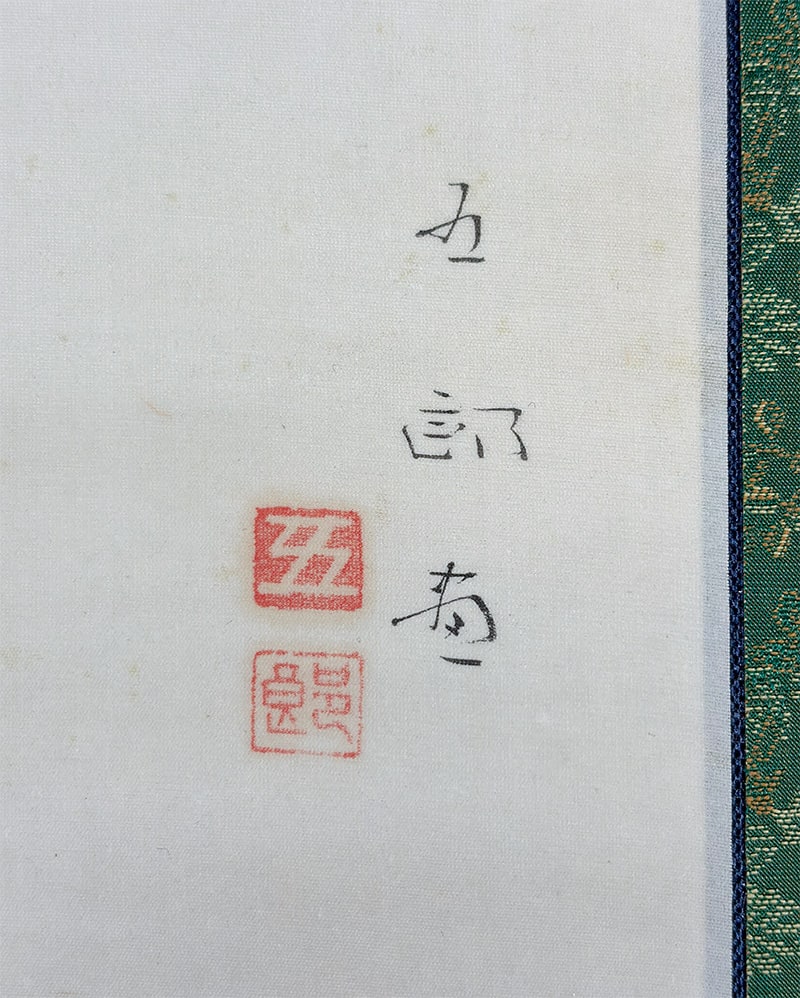 五
郎
画
五
郎